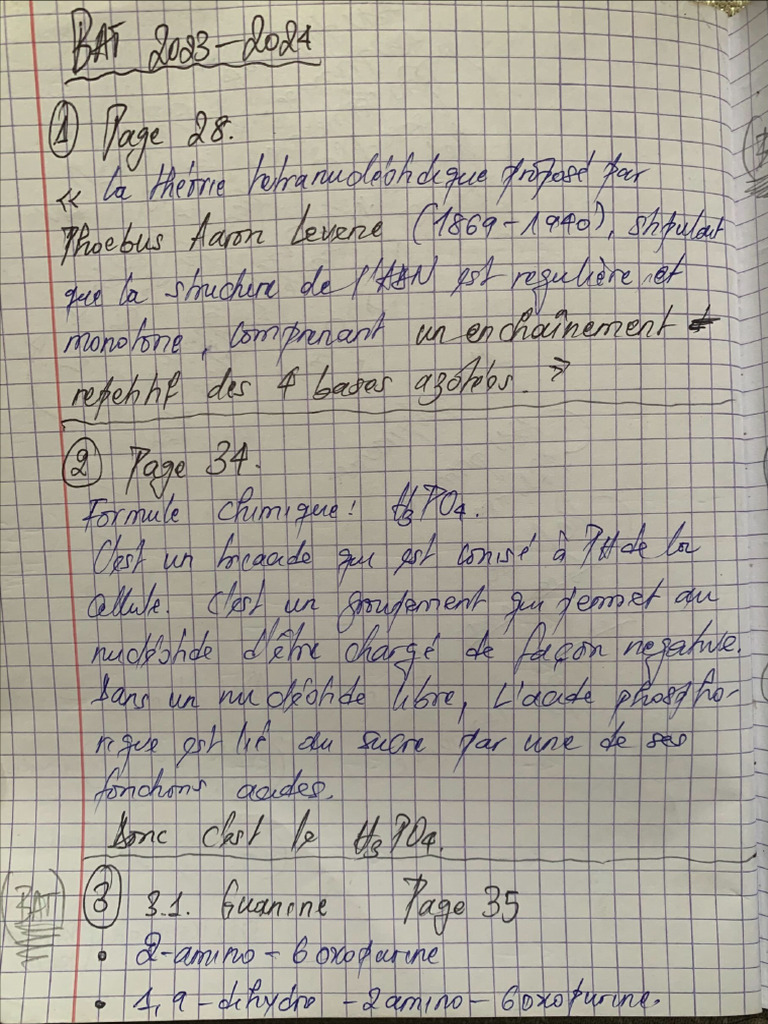 BAT 2023-2024
① Page 28.
« La théorie tetranucléotidique proposé par
Phoebus Aaron Levene (1869-1940), stipulant
que la structure de l'ADN est regulière et
monotone, comprenant un enchaînement
repetitif des 4 bases azotées. »
② Page 34.
Formule chimique: H₃PO₄.
C'est un triacide qui est ionisé à PH de la
cellule. C'est un groupement qui permet au
nucléotide d'être chargé de façon negative.
Dans un nucléotide libre, L'acide phospho-
rique est lié au sucre par une de ses
fonctions acides.
Donc c'est le H₃PO₄.
BAT
③ 3.1. Guanine Page 35
• 2-amino-6 oxopurine
• 1,9-dihydro-2amino-6oxopurine.